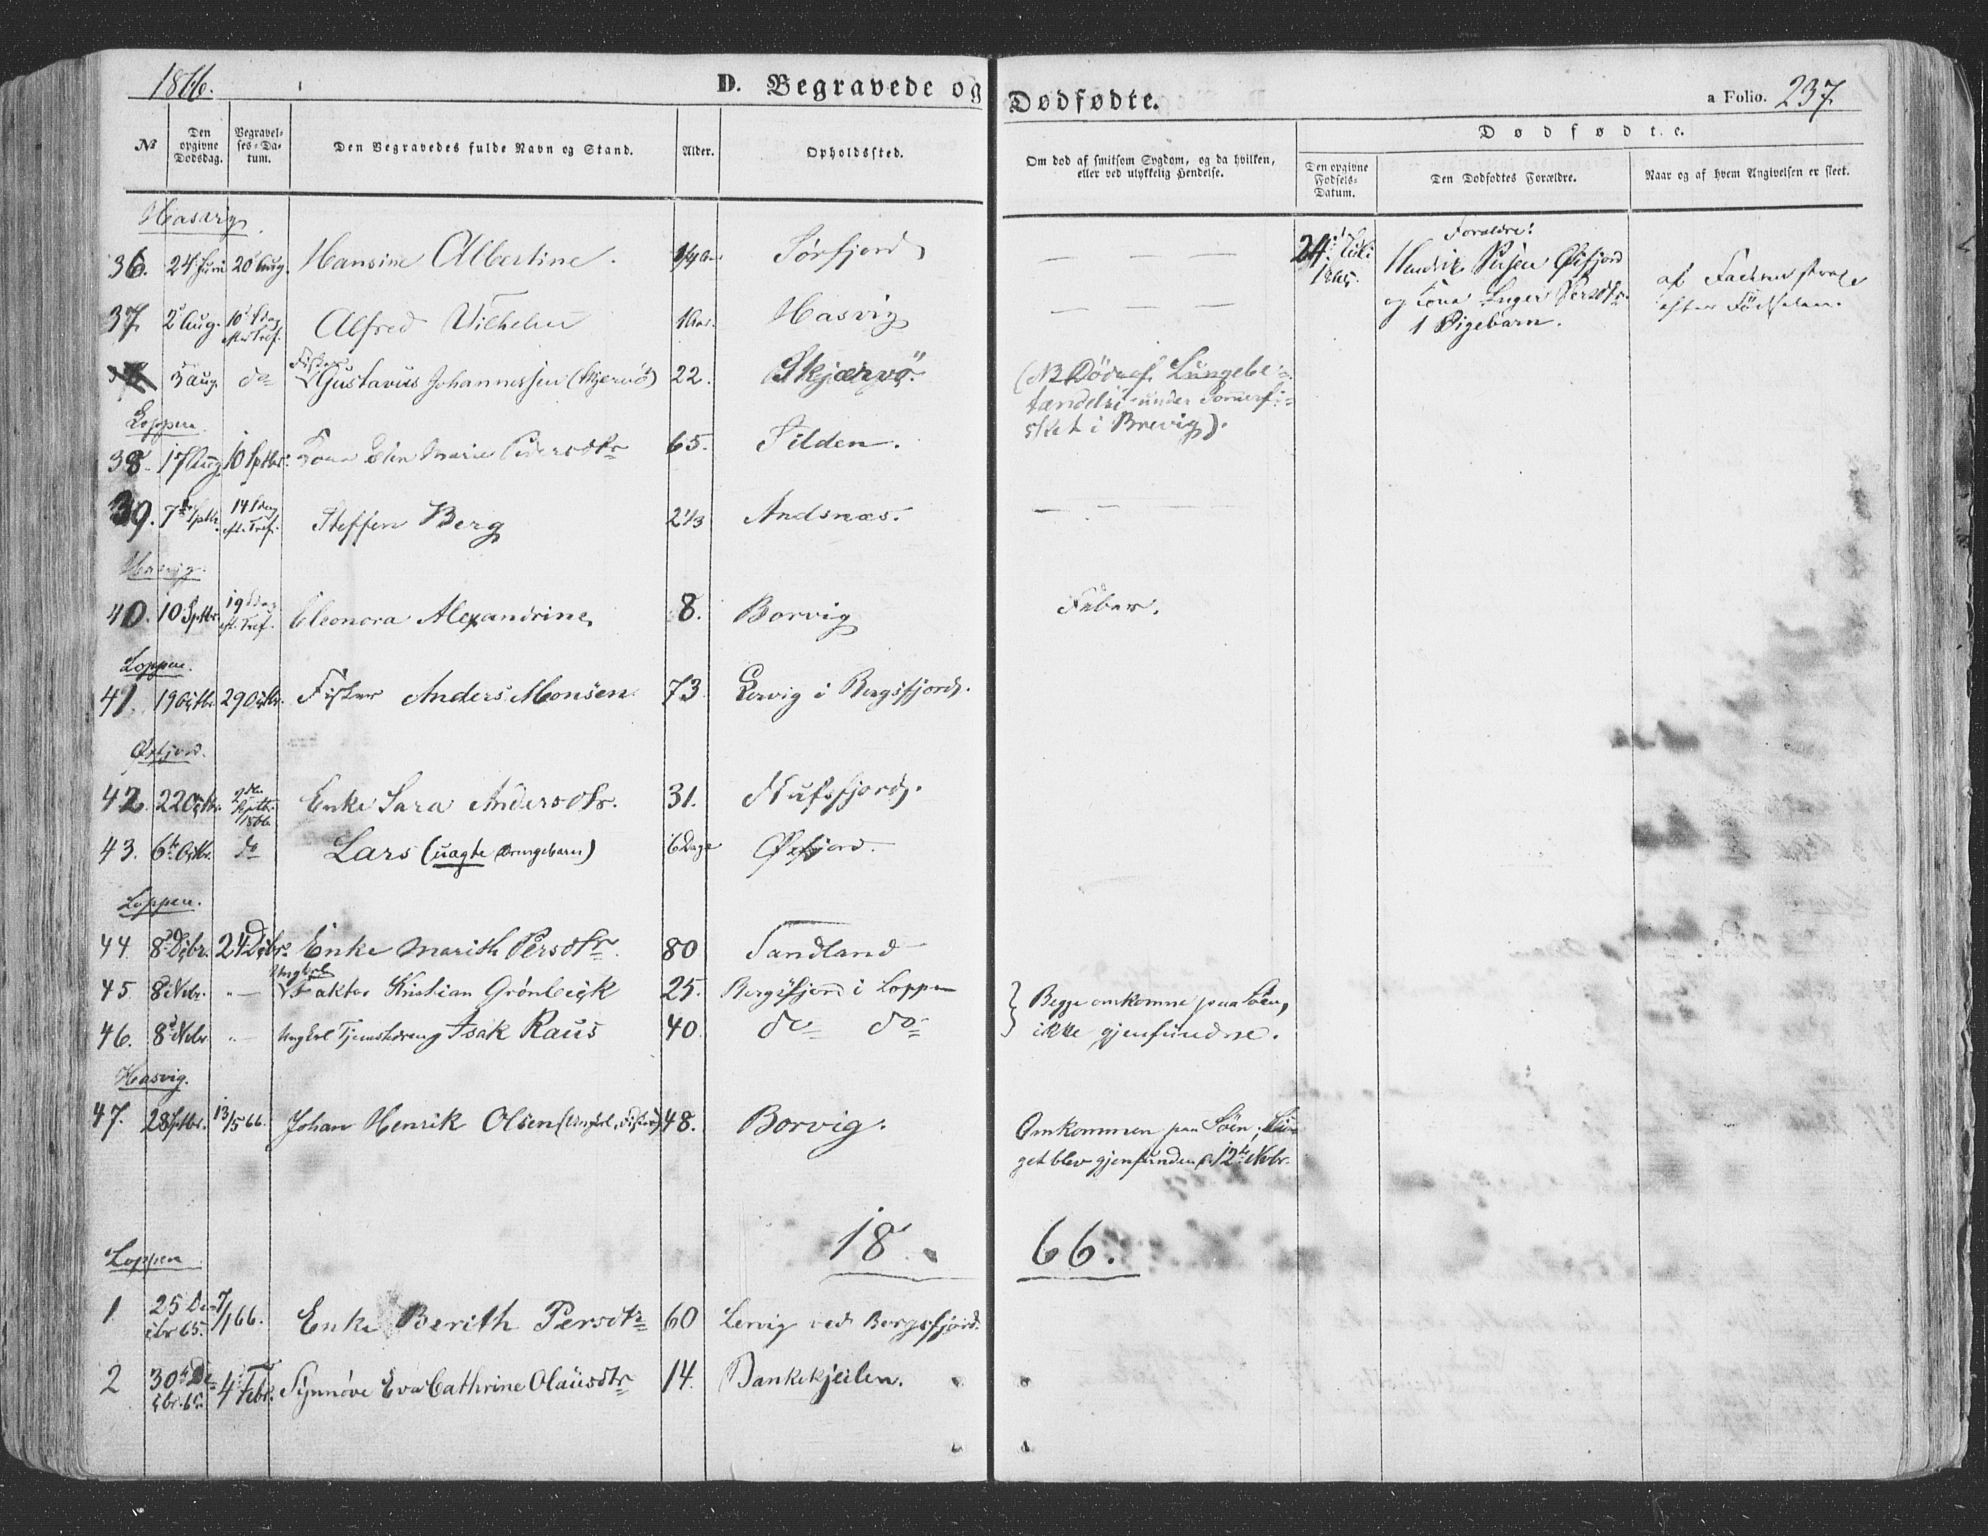 1866.
D. Begravede og Dødfødte.
a Folio. 237.
No
Den opgivne Dødsdag.
Begravelses-Datum.
Den Begravedes fulde Navn og Stand.
Alder.
Opholdssted.
Om død af smitsom Sygdom, og da hvilken,
eller ved ulykkelig Hendelse.
Dødfødte.
Den opgivne Fødsels-Datum.
Den Dødfødtes Forældre.
Naar og af hvem Angivelsen er skeet.
Hasvig
36. 24 Juni 20 Aug. Hansine Albertine. Sørfjord — — —
24 1865
Forældre:
Henrik Øxfjord
og Inger Persdtr.
1 Pigebarn.
af Faderen
efter Fødselen.
37 2 Aug. 10 Alfred Vilhelm 1 Aar. Hasvig — — —
5 Aug. do Fisker Gustavus Johannessen (Skjervø) 22. Skjærvø.
(NB Død af Lungebe-
tændelse under Sommerfi-
sket i Brevig).
Loppen.
38. 17 Aug 10 Sptbr. Elen Marie Pedersdtr 65. Silden.
39. 7de Sptbr. 14 Steffen Berg 2 1/3 Andsnæs.
Hasvig.
40. 10 Sptbr. 19 Eleonora Alexandrine 8. Borvig Feber.
Loppen.
41. 19 Octbr 29 Octbr. Fisker Anders Monsen 73. Lervig i Bergsfjord.
Øxfjord.
42. 22 Octbr. 2den 1866 Enke Sara Andersdtr. 31. Nufsfjord.
43. 6te Octbr. do Lars (uægte Drengebarn) 6 Dage Øxfjord.
Loppen.
44. 8 Decbr. 24 Decbr. Enke Marith Persdtr. 80 Sandland
45. 8 Novbr. " — Ungkarl Faktor Kristian Grønbeck 25. Bergsfjord i Loppen
} Begge omkomne paa Søen,
46. 8 Novbr. " — Ungkrl Tjenestedreng Isak Raus 40. do do
ikke gjenfundne.
Hasvig.
47. 28 Sptbr. 13/5 66. Johan Henrik Olsen (Ungkrl, Fisker) 48. Borvig.
Omkommen paa Søen;
get blev gjenfunden 12te Novbr.
18 66.
Loppen
1 25 Decbr 65. 7/1 66. Enke Berith Persdtr 60 Lervig ved Bergsfjord.
2 30te Decbr. 65. 4 Febr. Synnøve Eva Cathrine Olausdtr 14. Bankekjeilen.